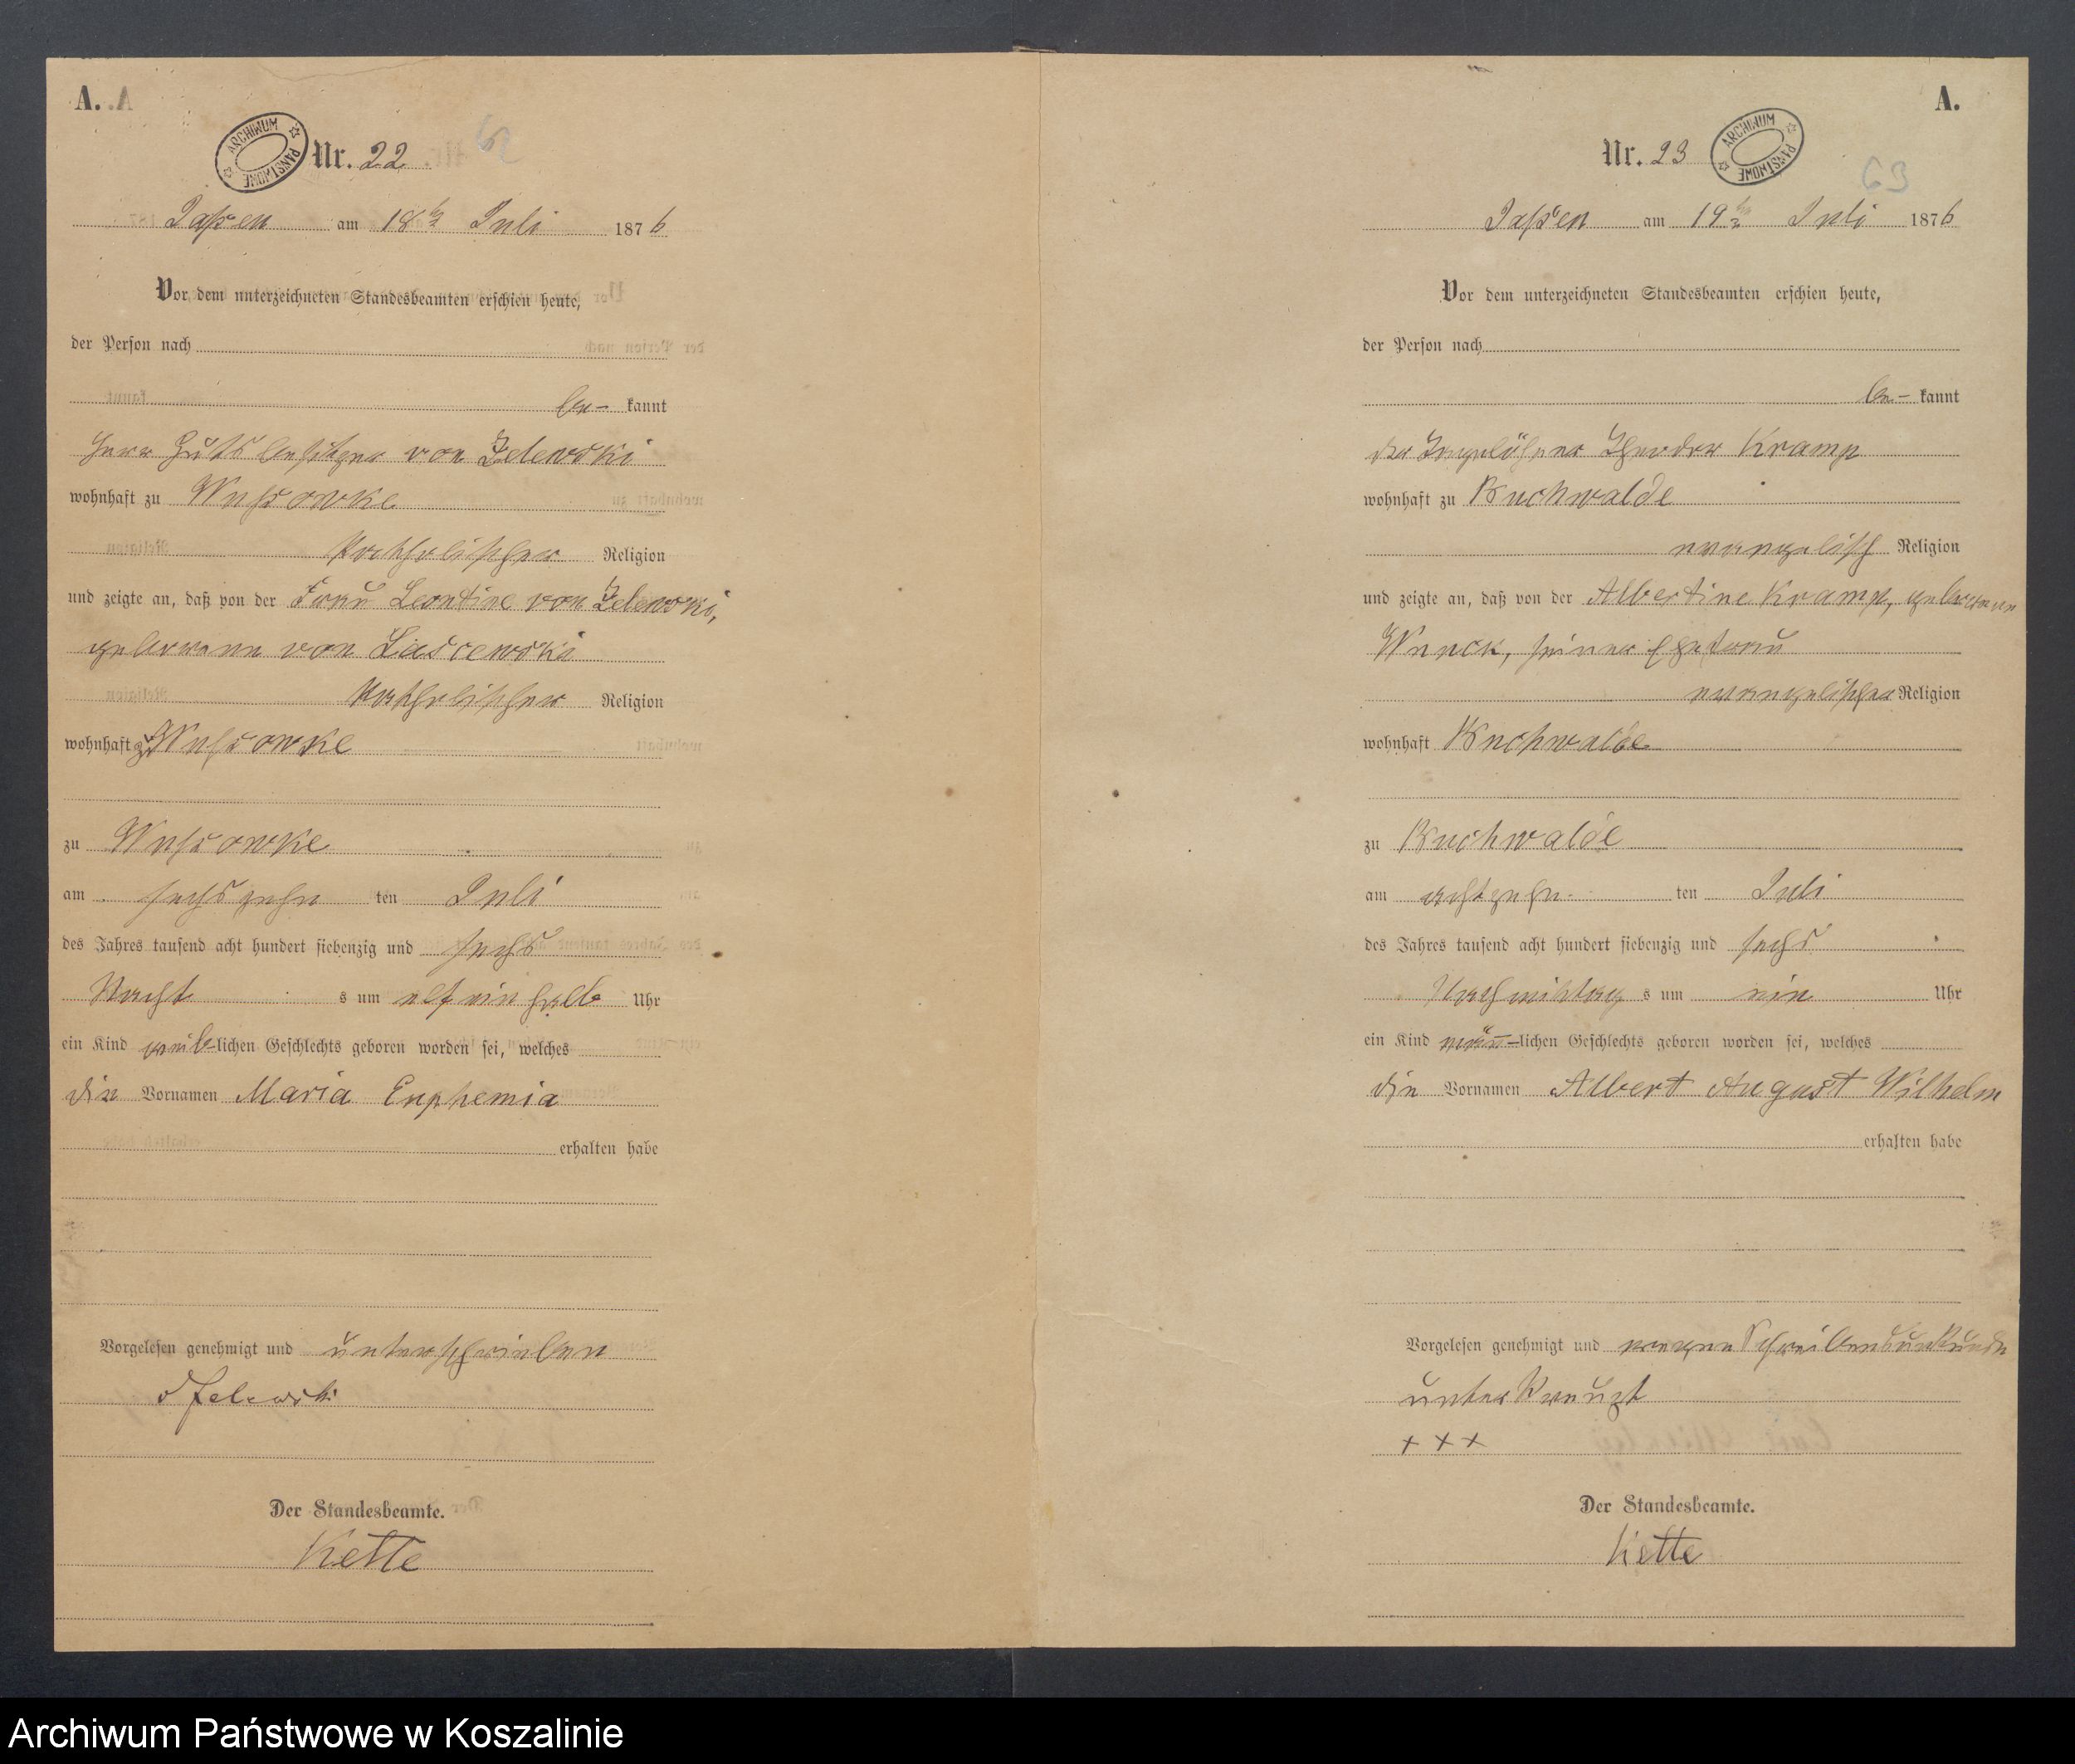 A.
ARCHIWUM PAŃSTWOWE
Nr. 22
62
Jassen am 18ten Juli 1876
Vor dem unterzeichneten Standesbeamten erschien heute,
der Person nach
be- kannt
Herr Gutsbesitzer von Zelewski
wohnhaft zu Wussowke
katholischer Religion
und zeigte an, daß von der Frau Leontine von Zelewski,
geborenen von Lascewski
katholischer Religion
wohnhaft zu Wussowke
zu Wussowke
am sechszehn ten Juli
des Jahres tausend acht hundert siebenzig und sechs
Nacht s um elf ein halb Uhr
ein Kind weib-lichen Geschlechts geboren worden sei, welches
die Vornamen Maria Euphemia
erhalten habe
Vorgelesen genehmigt und unterschrieben
v Zelewski
Der Standesbeamte.
Kette
A.
Nr. 23
ARCHIWUM PAŃSTWOWE
63
Jassen am 19ten Juli 1876
Vor dem unterzeichneten Standesbeamten erschien heute,
der Person nach
be- kannt
der Tagelöhner Theodor Kramp
wohnhaft zu Buchwalde
evangelisch Religion
und zeigte an, daß von der Albertine Kramp, geborenen
Wenck, seiner Ehefrau
evangelischer Religion
wohnhaft Buchwalde
zu Buchwalde
am achtzehn ten Juli
des Jahres tausend acht hundert siebenzig und sechs
Nachmittag s um ein Uhr
ein Kind männ-lichen Geschlechts geboren worden sei, welches
die Vornamen Albert August Wilhelm
erhalten habe
Vorgelesen genehmigt und wegen Schreibensunkunde
unterkreuzt
+ + +
Der Standesbeamte.
Kette
Archiwum Państwowe w Koszalinie